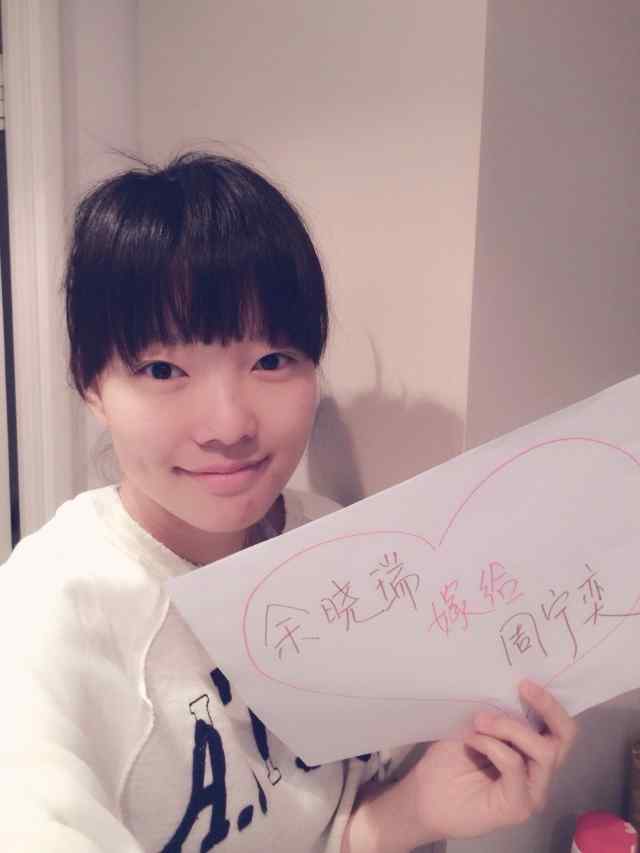 余晓瑞
嫁给
周宁奕
A.